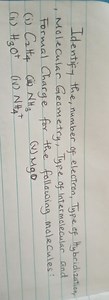 Identify the, number of electron, Type of Hybridisation,
Molecular Geometry, Type of Intermolecular and
Formal Charge for the following molecules:
(i) C₂H₄ (ii) NH₃ (v) MgO
(iii) H₃O⁺ (iv) NH₄⁺